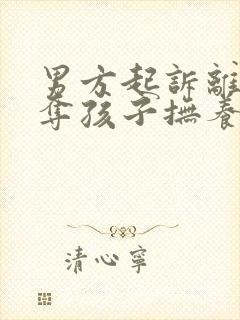 男方起訴離
奪孩子撫養
清心寧